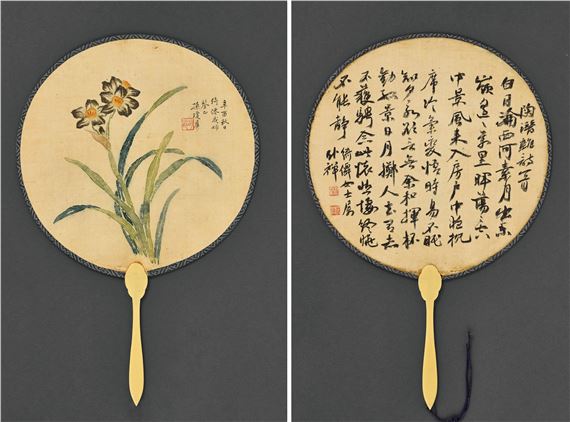 辛酉秋日
陶潛雜詩一首
白日淪西河素月出東
嶺遙〻萬里暉蕩〻空
中景風來入房戶中夜枕
席冷氣變悟時易不眠
知夕永欲言無余和揮杯
勸孤影日月擲人去有志
不獲騁念此懷悲悽終曉
不能靜 女士屬